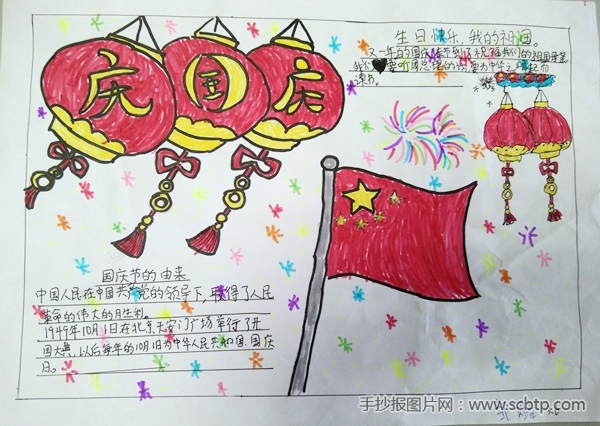 庆国庆
生日快乐,我的祖国。
又一年的国庆佳节到了祝福我们的祖国母亲
我们要听周总理的话,要为中华之崛起而
读书。
国庆节的由来
中国人民在中国共产党的领导下,取得了人民
革命的伟大的月生利。
1949年10月1日在北京天安门广场举行了开
国大典,以后每年的10月1日为中华人民共和国国庆
日。
手抄报图片网:www.scbtp.com